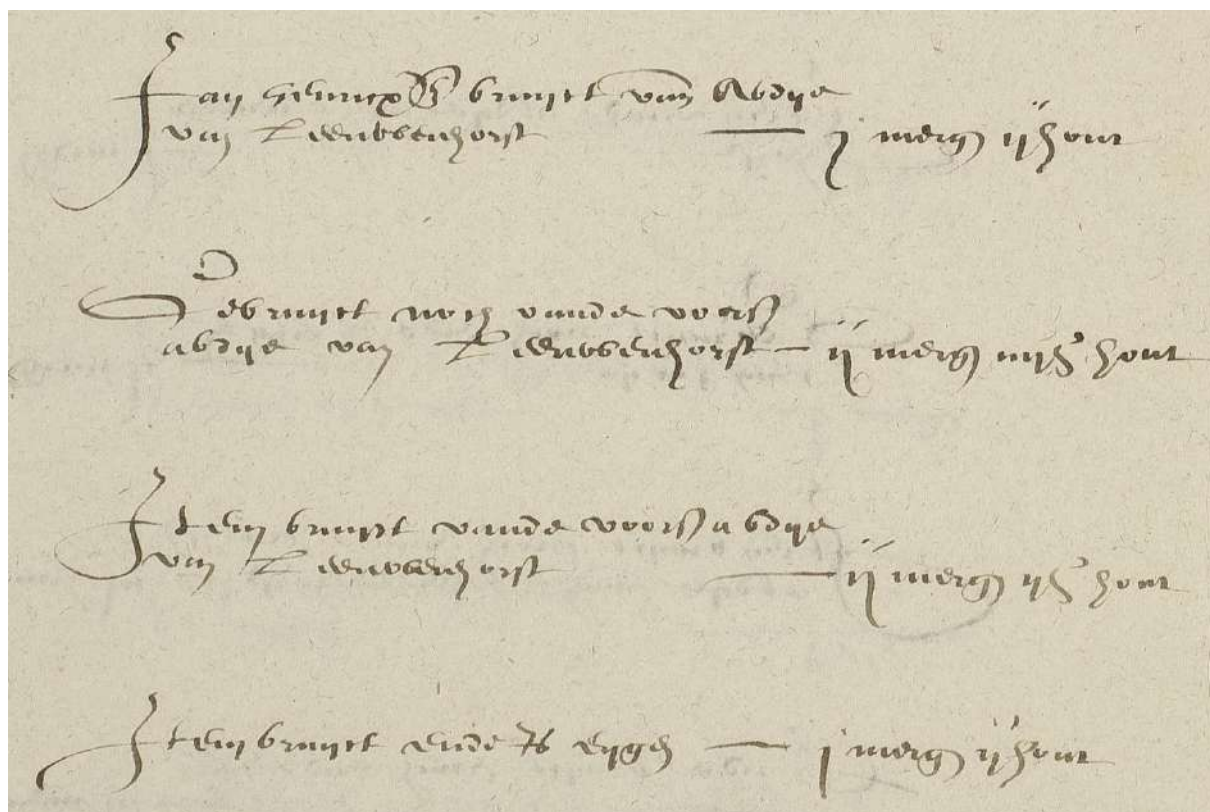 Jan henricxz bruyct van Abdye
van Leeuwenhorst — j merg ij hont
Gebruyct noch vande voors
abdye van Leeuwenhorst — ij merg iiij½ hont
Item bruyct vande voors abdye
van Leeuwenhorst — ij merg ij½ hont
Item bruyct ende is eygen — j merg ij hont